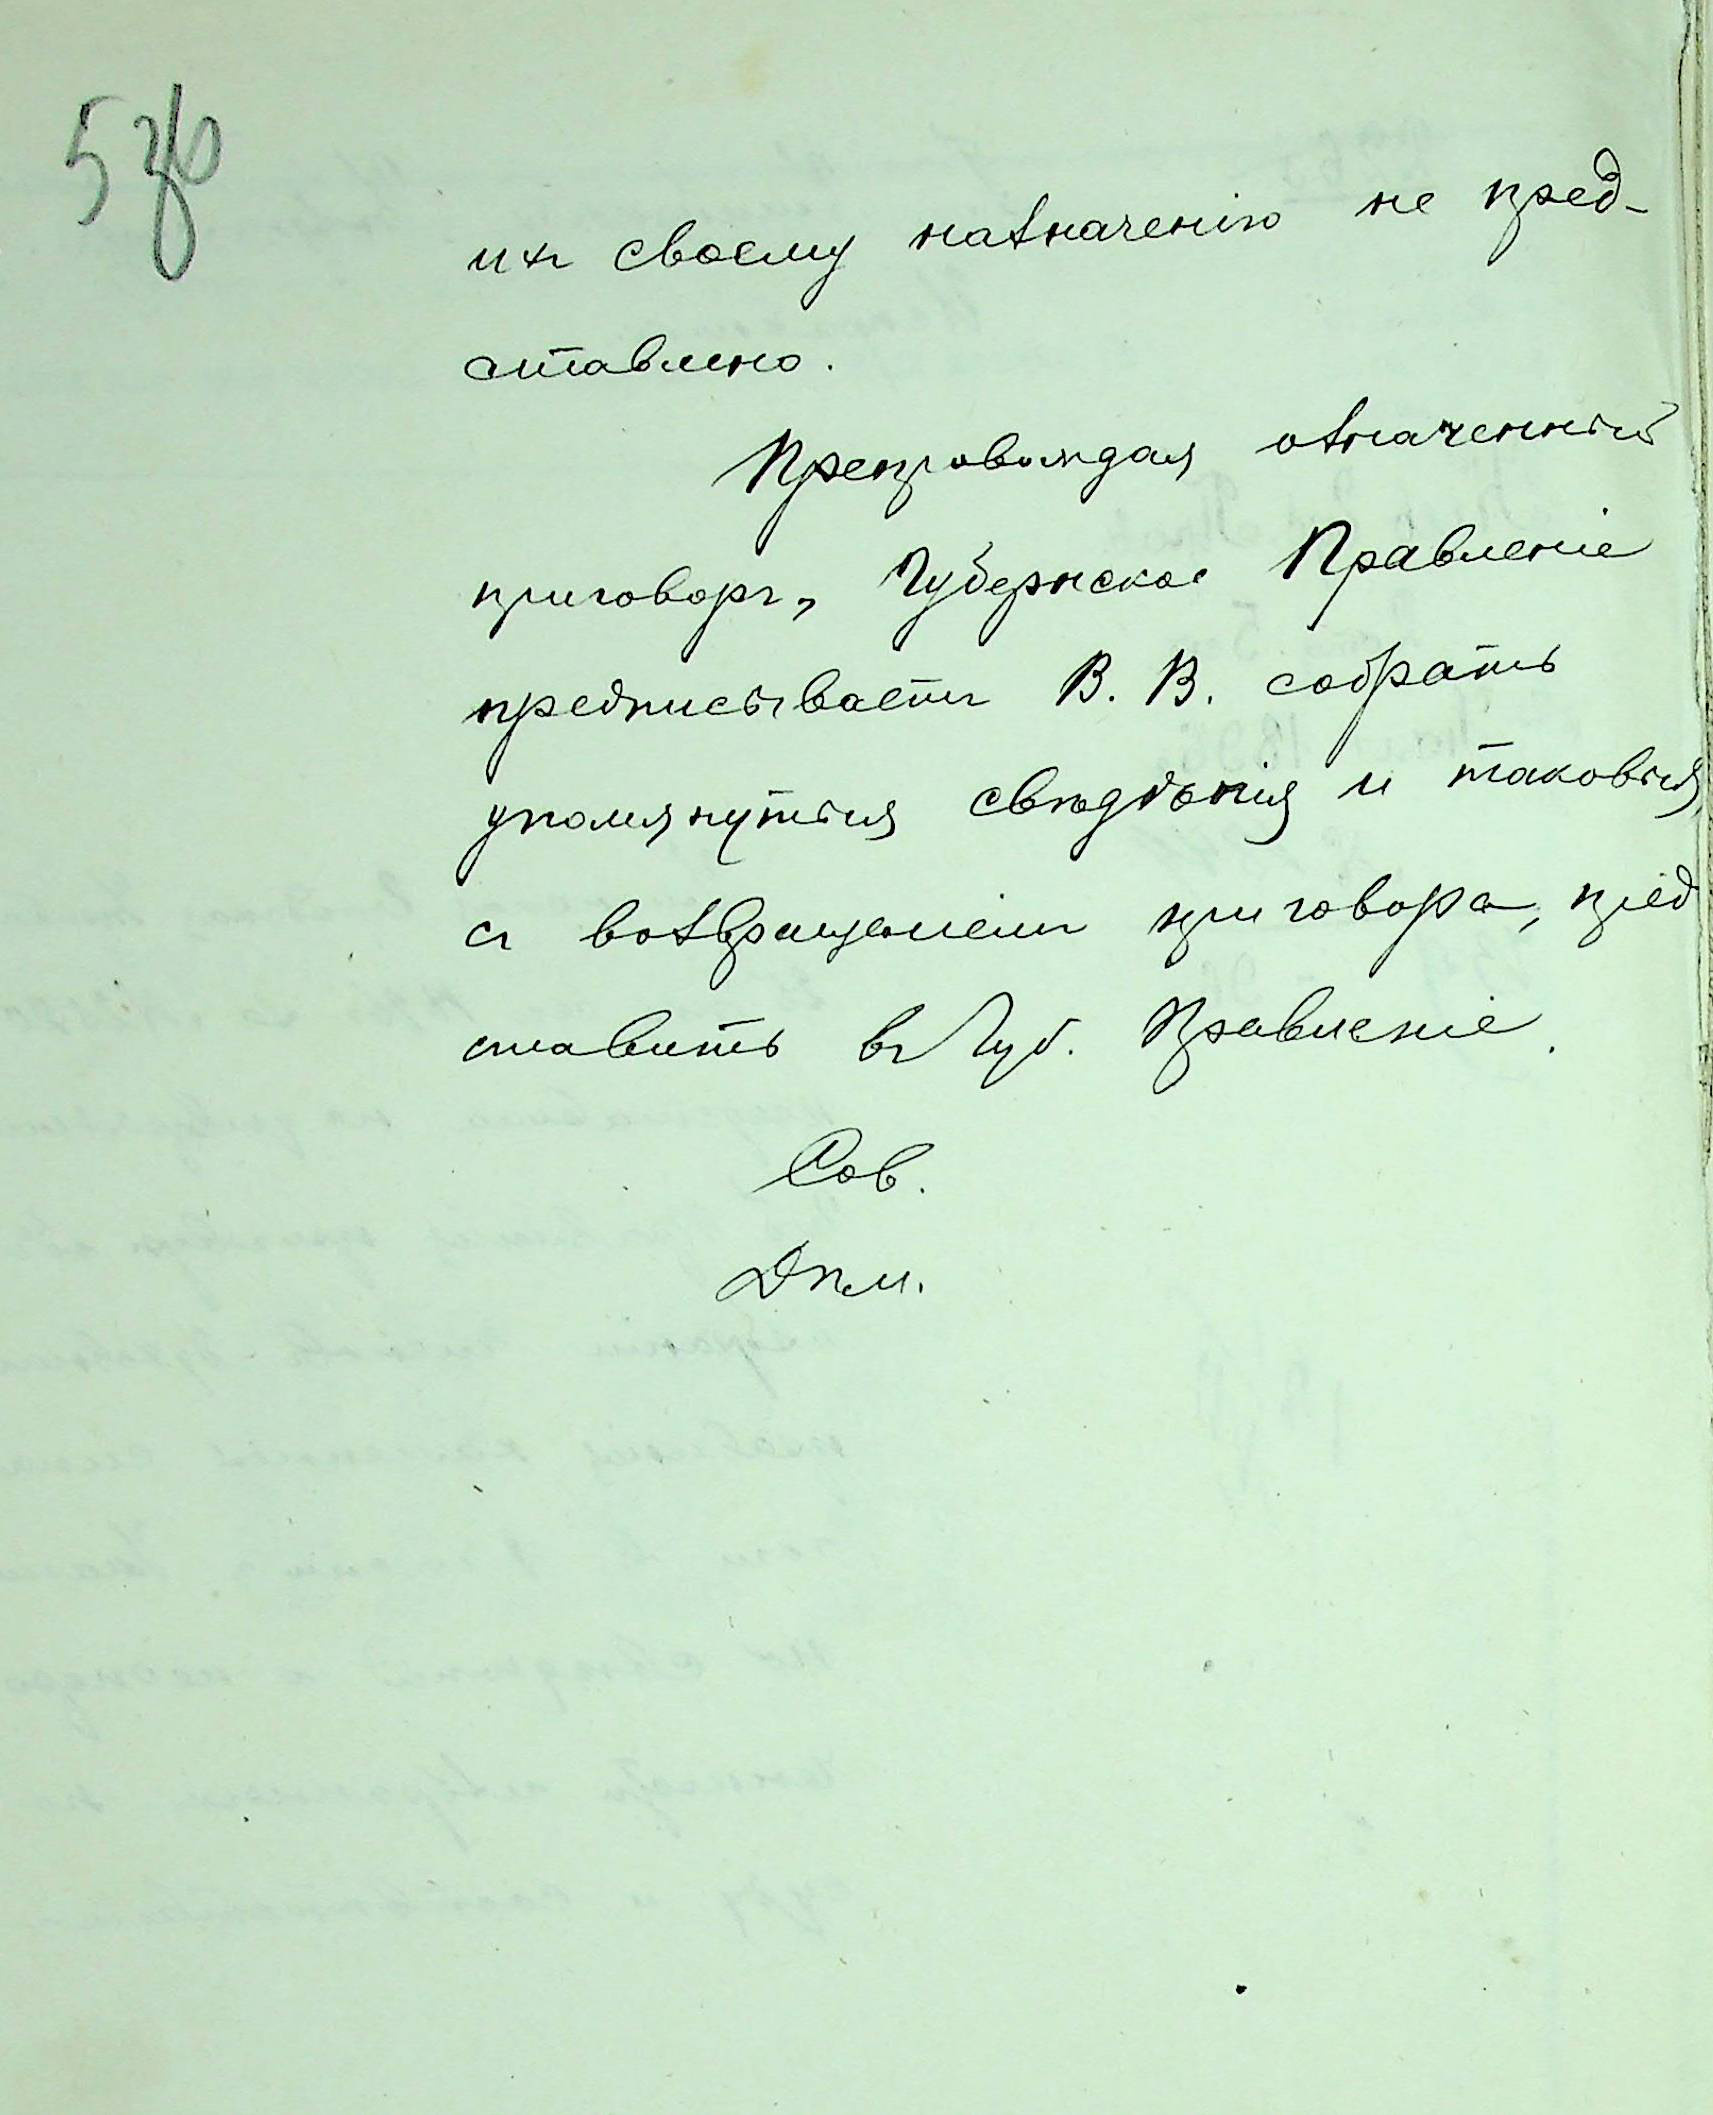 5 об
ихъ своему назначенію не пред-
ставлено.
Препровождая означенный
приговоръ, Губернское Правленіе
предписываетъ В. В. собрать
упомянутыя свѣдѣнія и таковыя,
съ возвращеніемъ приговора, пред
ставить въ Губ. Правленіе.
Сов.